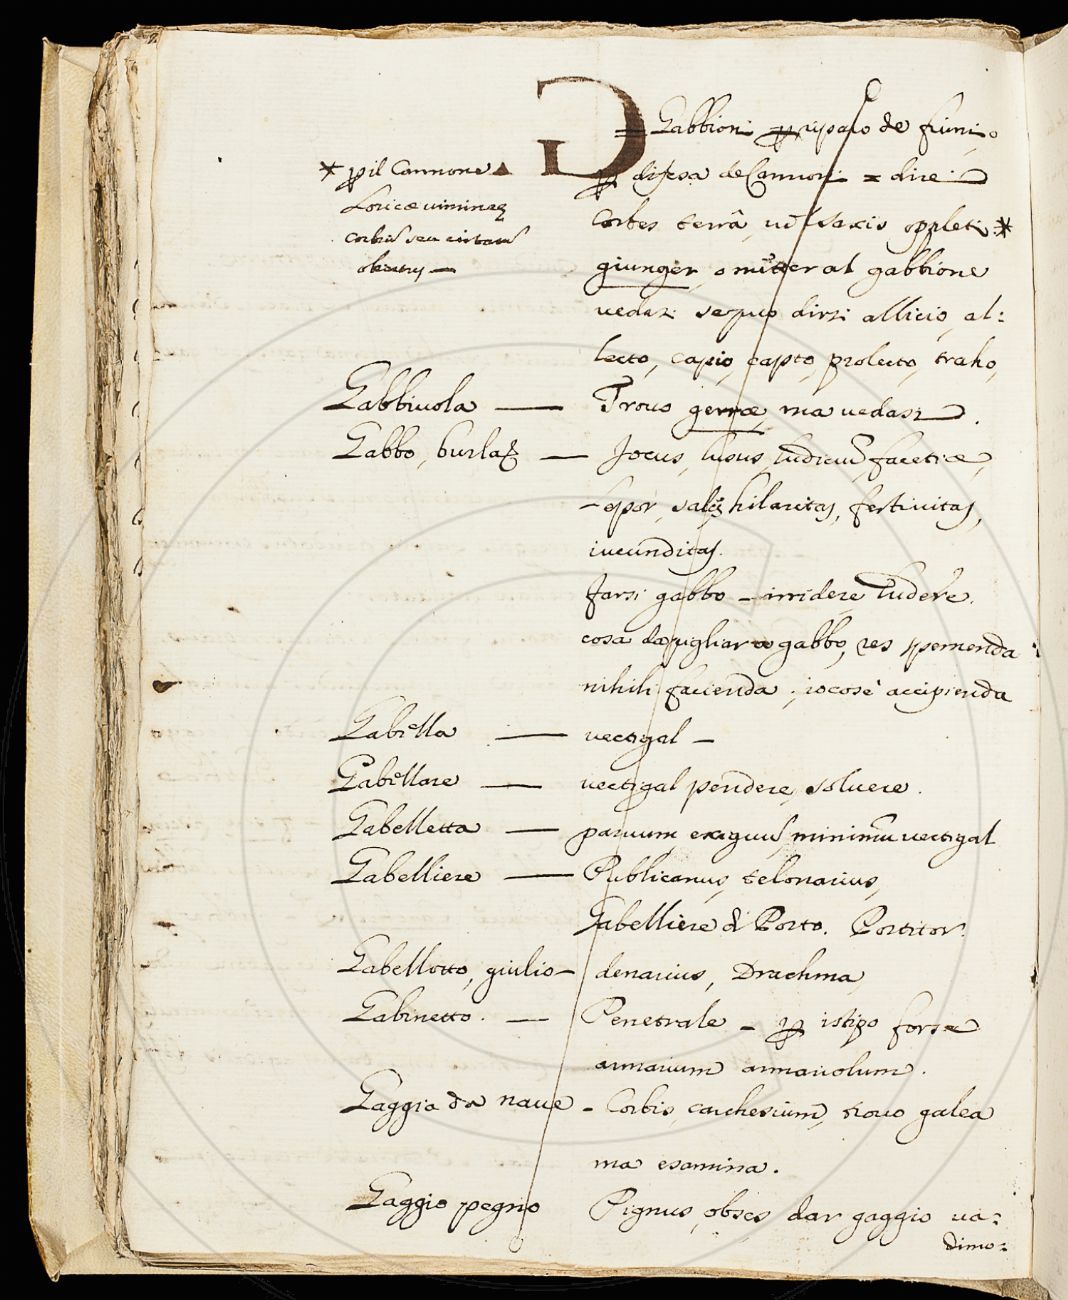 G
Gabbioni per riparo de fiumi, o
per difesa de Cannoni = dire
Corbes terrâ, vel saxis oppleti *
* per il Cannone
Loricæ vimineæ
corbiū seu
giunger, o mitter al gabbione
vedasi se può dirsi allicio, al:
lecto, capio, capto, prolecto, traho,
Gabbiuola — Trovo gerræ, ma vedasi.
Gabbo, burla — Jocus, lusus, ludicrū, facetiæ,
lepor, sales, hilaritas, festivitas,
iucunditas.
farsi gabbo – irridere, ludere.
cosa da pigliar a gabbo, res spernenda
nihili facienda, iocosè accipienda
Gabella — vectigal –
Gabellare — vectigal pendere, solvere.
Gabelletta — parvum exiguū minimū vectigal
Gabelliere — Publicanus, telonarius,
Gabelliere di Porto. Portitor.
Gabellotto, giulio – denarius, Drachma
Gabinetto. — Penetrale – per istipo forse
armarium armariolum.
Gaggia da nave – Corbis, carchesium, trovo galea
ma esamina.
Gaggio pegno Pignus, obses, dar gaggio va:
dimo: